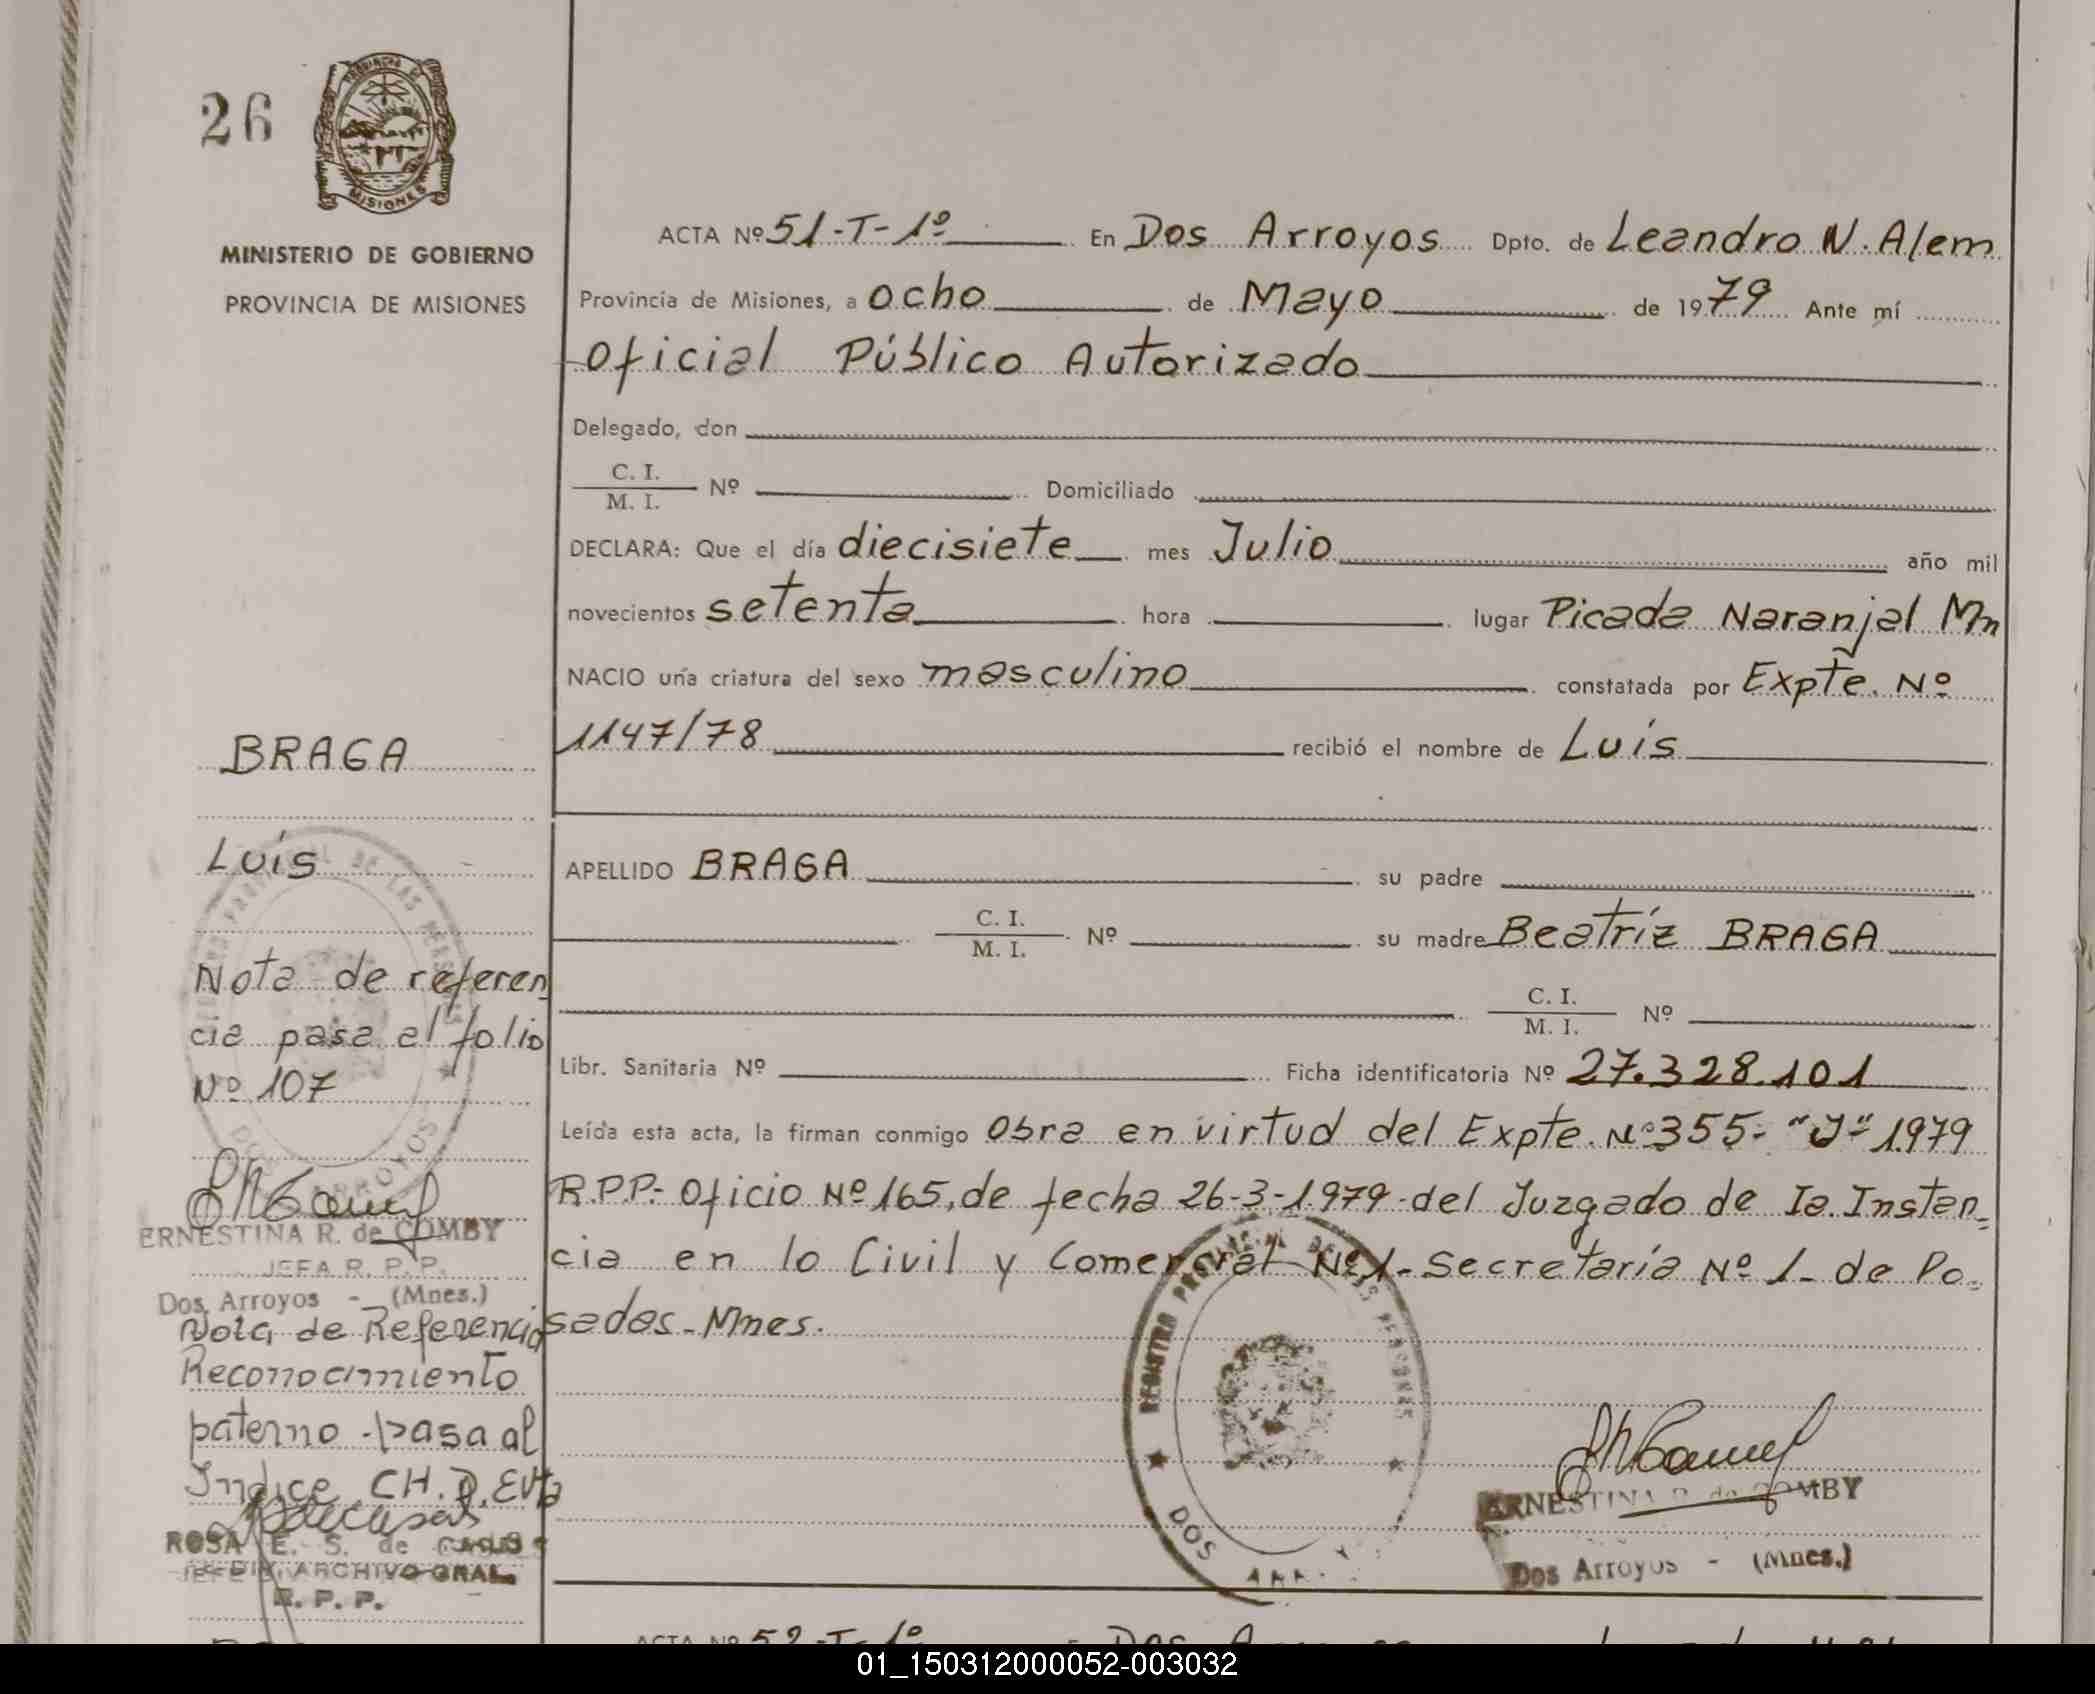 26
PROVINCIA DE
MISIONES
MINISTERIO DE GOBIERNO
PROVINCIA DE MISIONES
ACTA Nº 51-T-1º En Dos Arroyos Dpto. de Leandro N. Alem
Provincia de Misiones, a ocho de Mayo de 1979 Ante mí
Oficial Público Autorizado
Delegado, don
C. I.
M. I. Nº Domiciliado
DECLARA: Que el día diecisiete mes Julio año mil
novecientos setenta hora lugar Picada Naranjal Mn
NACIO una criatura del sexo masculino constatada por Expte. Nº
1147/78 recibió el nombre de Luis
APELLIDO BRAGA su padre
C. I.
M. I. Nº su madre Beatríz BRAGA
C. I.
M. I. Nº
Libr. Sanitaria Nº Ficha identificatoria Nº 27.328.101
Leída esta acta, la firman conmigo Obra en virtud del Expte. Nº 355- "J" 1979
R.P.P.- Oficio Nº 165, de fecha 26-3-1979 del Juzgado de Ia. Instan-
cia en lo Civil y Comercial Nº 1- Secretaría Nº 1- de Po-
sadas-Mnes.
REGISTRO PROVINCIAL DE LAS PERSONAS
DOS ARR
ERNESTINA R. de COMBY
Dos Arroyos - (Mnes.)
BRAGA
Luis
Nota de referen
cia pasa al folio
Nº 107
PROVINCIAL DE LAS PERSONAS
DOS ARROYOS
ERNESTINA R. de COMBY
JEFA R. P. P.
Dos Arroyos - (Mnes.)
Nota de Referencia
Reconocimiento
paterno - pasa al
Indice CH. D. Evta
ROSA E. S. de CASAS
JEFE DIV. ARCHIVO GRAL.
R. P. P.
ACTA Nº 52-T-1º
01_150312000052-003032